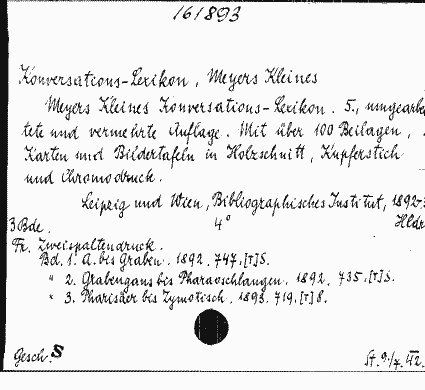 161893
Konversations-Lexikon, Meyers Kleines
Meyers Kleines Konversations-Lexikon. 5., umgearbei
tete und vermehrte Auflage. Mit über 100 Beilagen,
Karten und Bildertafeln in Holzschnitt, Kupferstich
und Chromodruck.
Leipzig und Wien, Bibliographisches Institut, 1892-3
3 Bde. 4° Hldr
Fr. Zweispaltendruck.
Bd. 1. A. bis Graben. 1892. 747, [1] S.
" 2. Grabengans bis Pharaoschlangen. 1892. 735, [1] S.
" 3. Pharisäer bis Zymotisch. 1893. 719, [1] S.
Gesch. S